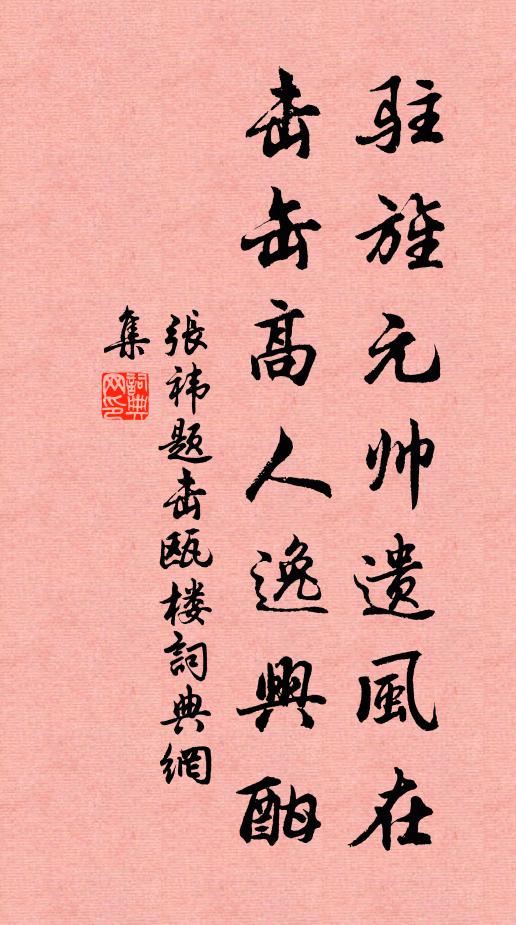 驻旌元帅遗風在
击缶高人逸興酣
張祎题击瓯楼詞典網
集
詞典网印